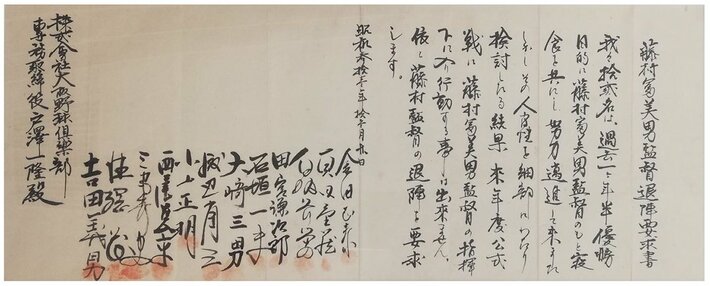 藤村富美男監督退陣要求書
我々拾弐名は、過去一ヶ年半優勝
目的に藤村富美男監督のもと寝
食を共にし努力邁進して来ました
しかしその人間性を細部にわたり
検討したる結果、来年度公式
戦に藤村富美男監督の指揮
下に入り行動する事は出来ません。
依て藤村監督の退陣を要求
します。
昭和参拾年拾月日
金田正泰
真田重蔵
白坂長栄
田宮謙次郎
石垣一夫
大崎三男
渡辺省三
小山正明
吉田義男
株式會社大阪野球倶楽部
専務取締役戸澤一隆殿